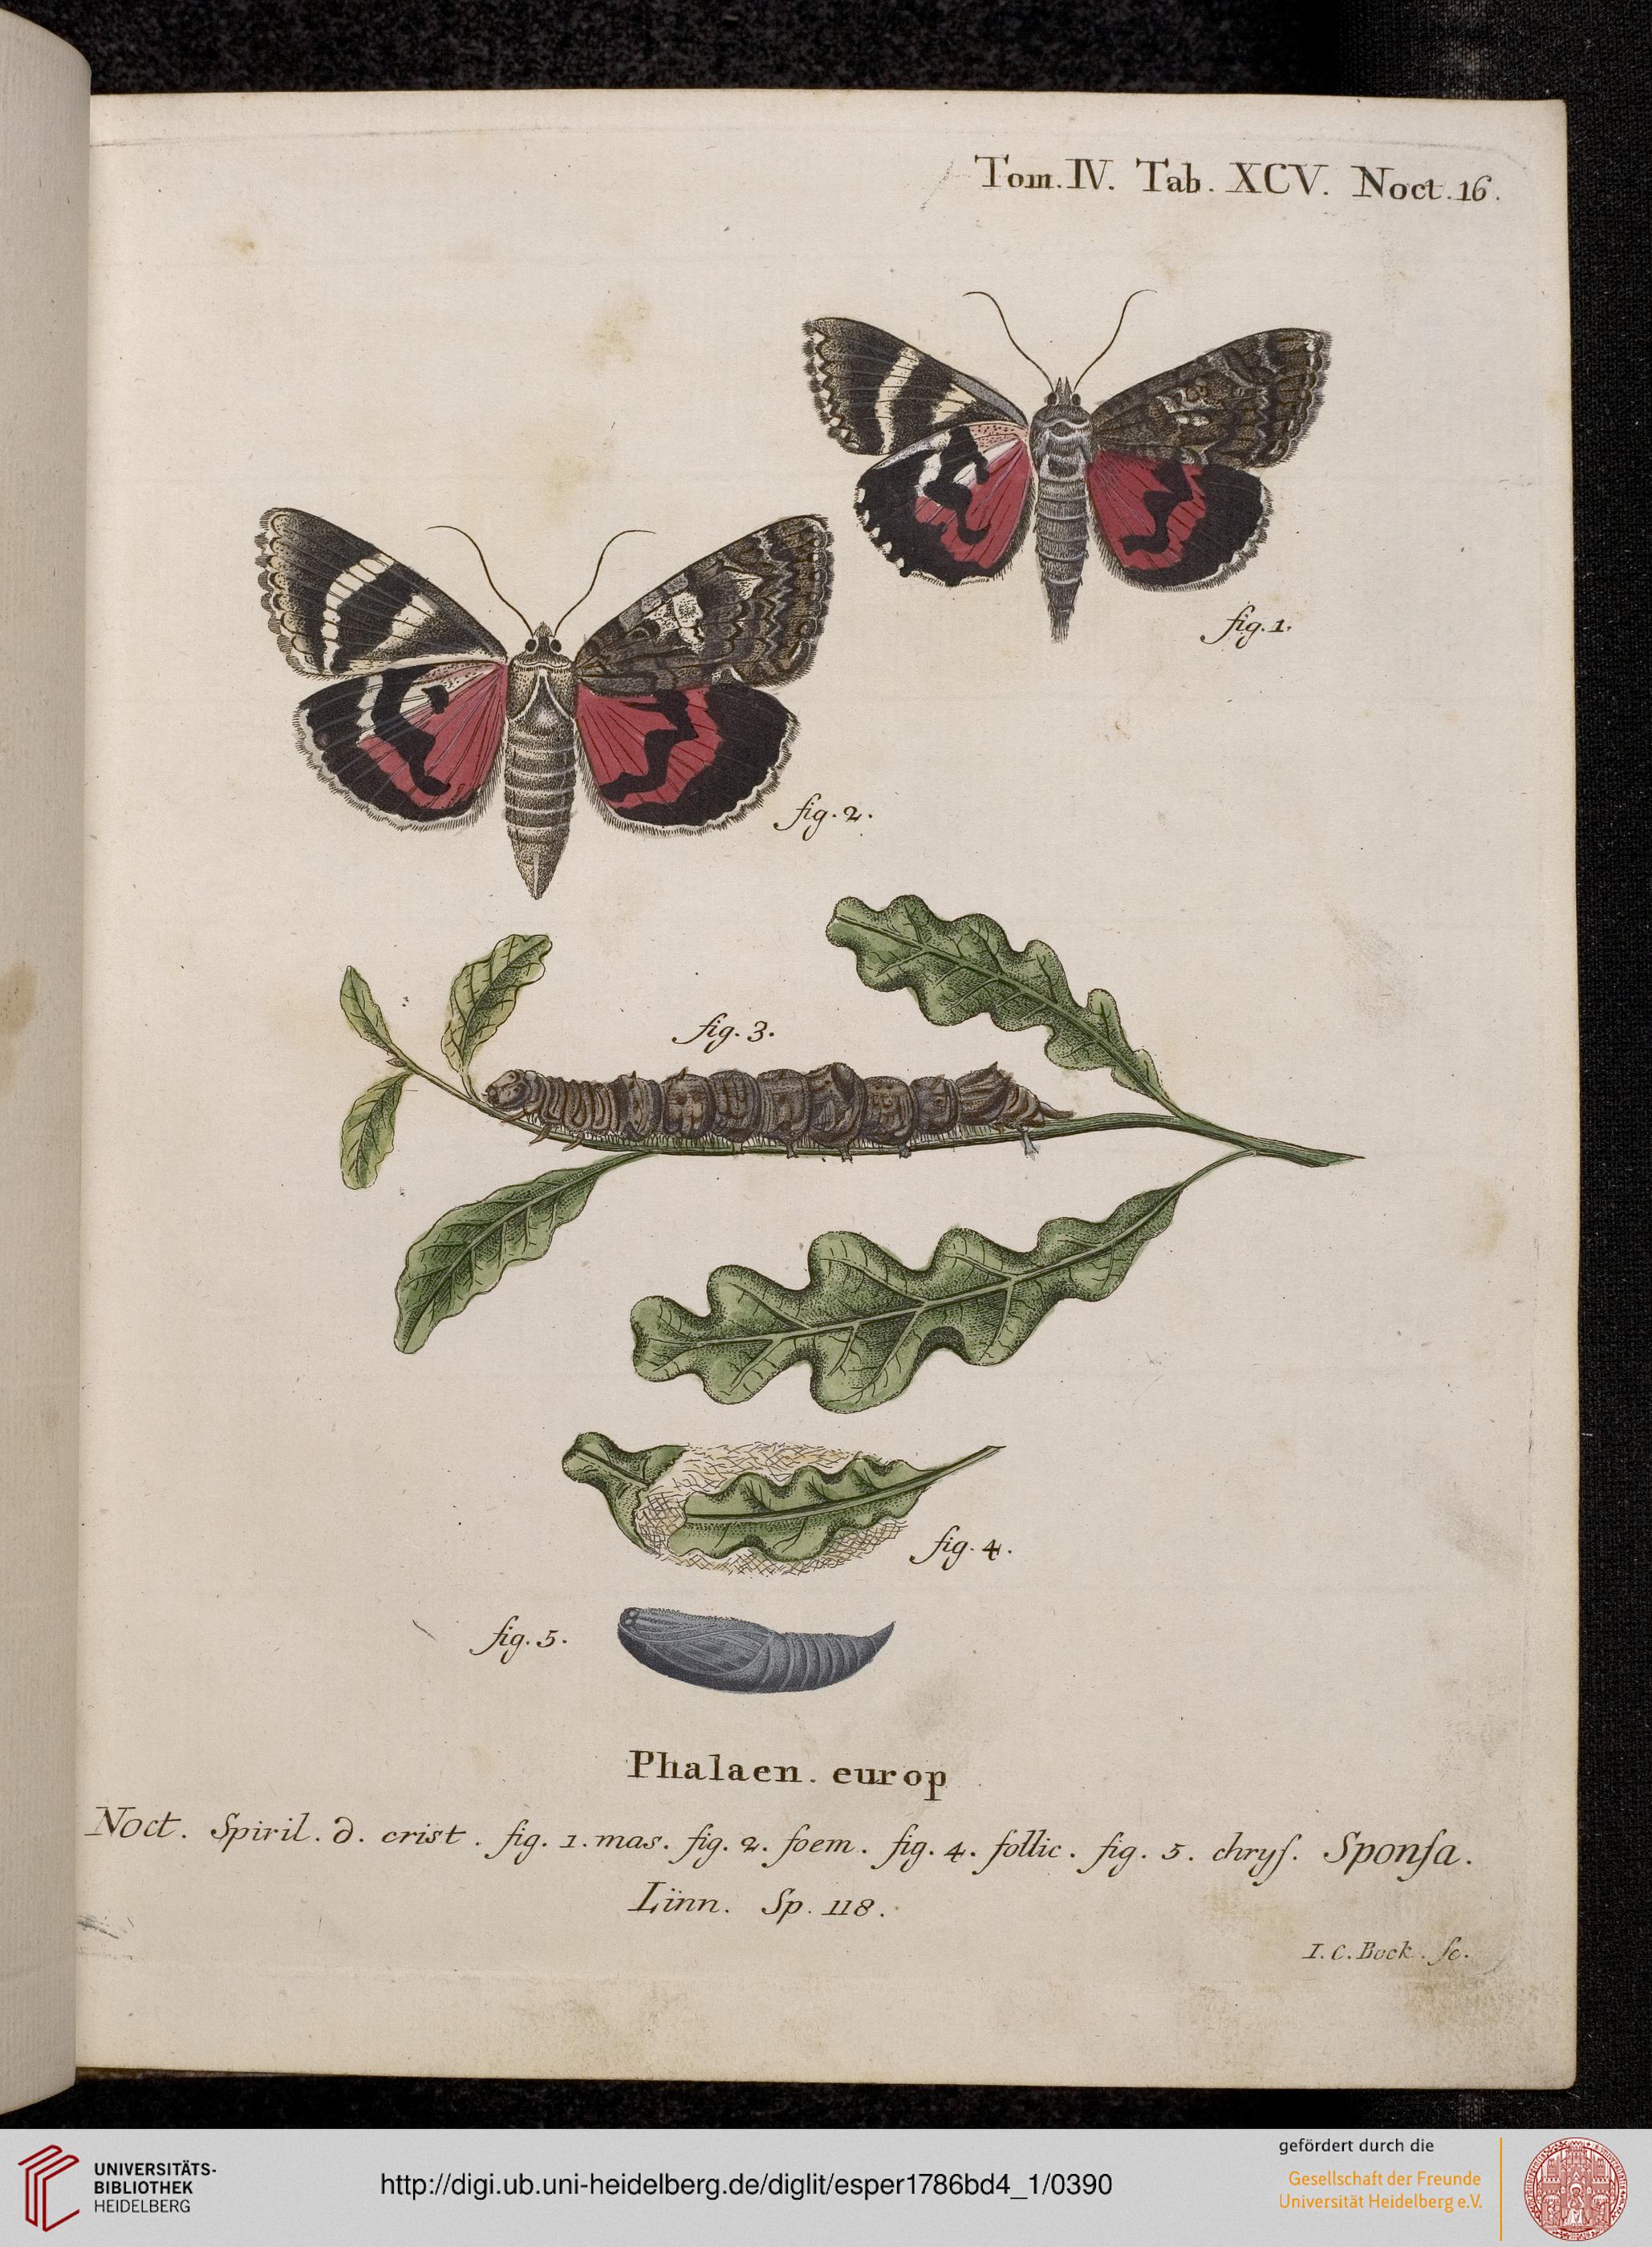 Tom. IV. Tab. XCV. Noct. 16.
fig. 1.
fig. 2.
fig. 3.
fig. 4.
fig. 5.
Phalaen. europ
Noct. Spiril. d. crist. fig. 1. mas. fig. 2. foem. fig. 4. follic. fig. 5. chryſ. Sponſa.
Linn. Sp. 118.
I. C. Bock. ſc.
UNIVERSITÄTS-
BIBLIOTHEK
HEIDELBERG
http://digi.ub.uni-heidelberg.de/diglit/esper1786bd4_1/0390
gefördert durch die
Gesellschaft der Freunde
Universität Heidelberg e.V.